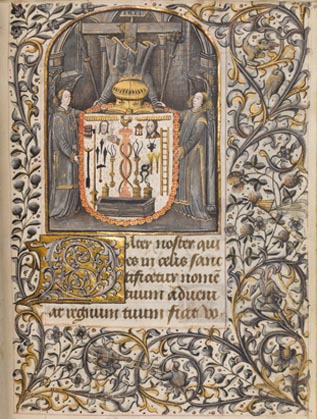 Pater noster qui
es in celis sanc
tificetur nomē
tuum adueni
at regnum tuum fiat vo